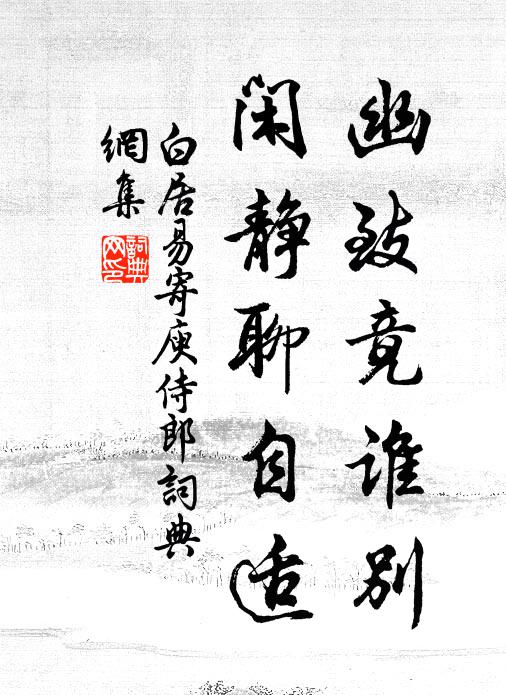 幽致竟誰別
閑静聊自适
白居易寄庾侍郎詞典
網集
詞典
网印